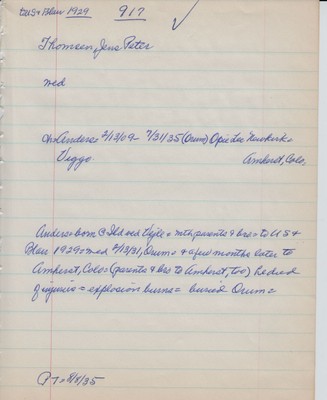 to US & Blair 1929 917 ✓
Thomsen, Jens Peter
med
ch = Anders = 2/13/09 - 7/31/35 (Orum) Opie Lee Newkirk =
Viggo Amherst, Colo.
Anders = born @ Ild ved Vejle = with parents & bro = to US &
Blair 1929 = med 2/13/31, Orum = & a few months later to
Amherst, Colo = (parents & bro to Amherst, too) He died
of injuries = explosion burns = buried Orum =
PT = 8/8/35